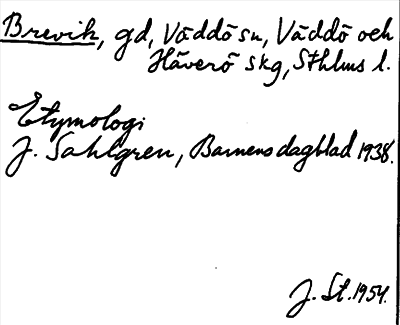 Brevik, gd, Väddö sn, Väddö och
Häverö skg, Sthlms l.
Etymologi
J. Sahlgren, Barnens dagblad 1938.
J. St. 1954.